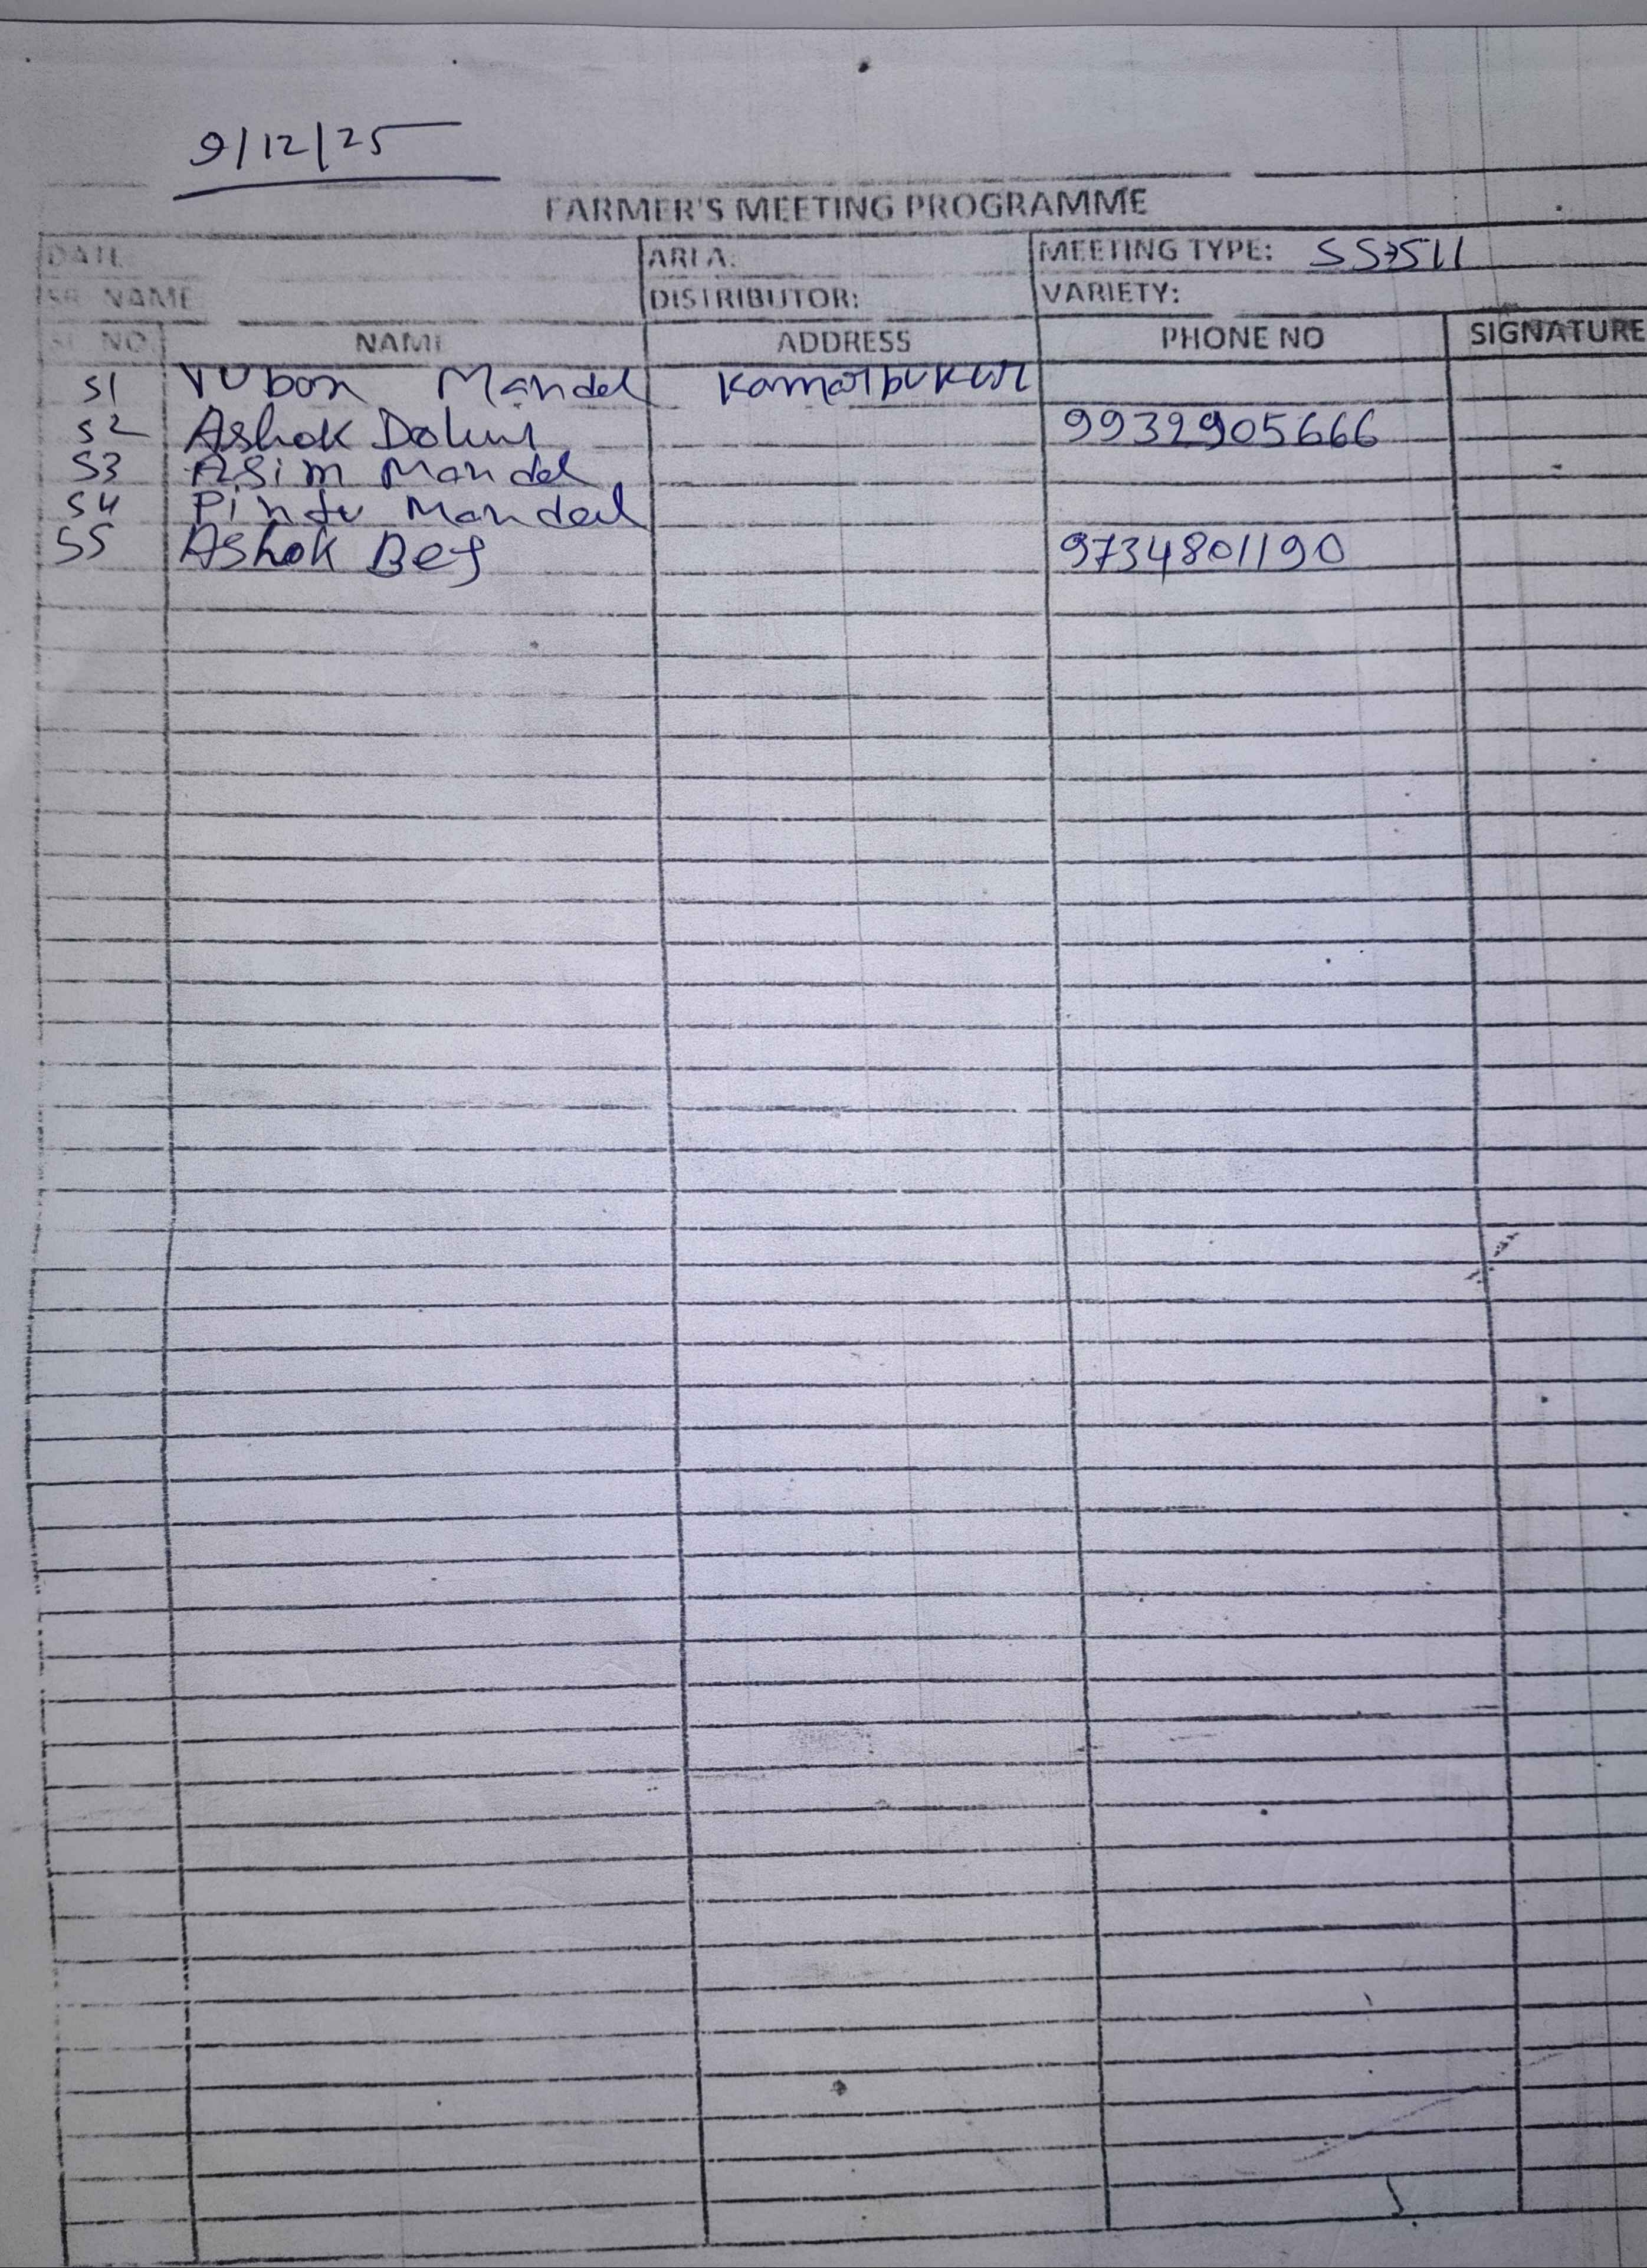 9/12/25
FARMER'S MEETING PROGRAMME
DATE AREA: MEETING TYPE: SS-7511
SR NAME DISTRIBUTOR: VARIETY:
SL NO. NAME ADDRESS PHONE NO SIGNATURE
51 Mandal Kamarpukur
52 Ashok Dolui 9932905666
53 Asim Mandal
54 Pintu Mandal
55 Ashok Bej 9734801190